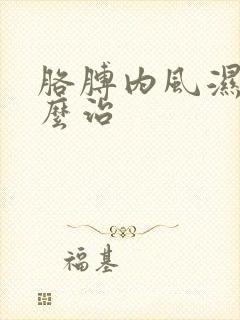 胳膊内风濕
麼治
福基